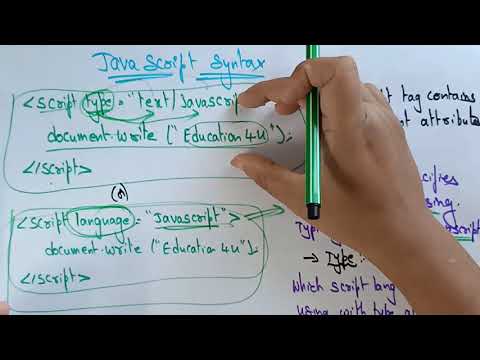 Java Script Syntax
<script type = "text/Javascri
document.write ("Education 4U");
</script>
(or)
<script language = "Javascript">
document.write ("Education 4U");
</script>
t tag contains
attribut
cifies
sing.
script
→ Type :
which script lang
using with type a